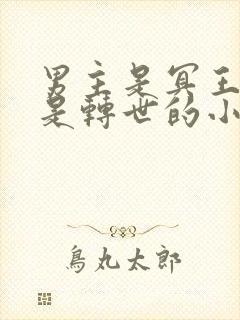 男主是冥王
是轉世的小
鳥丸太郎